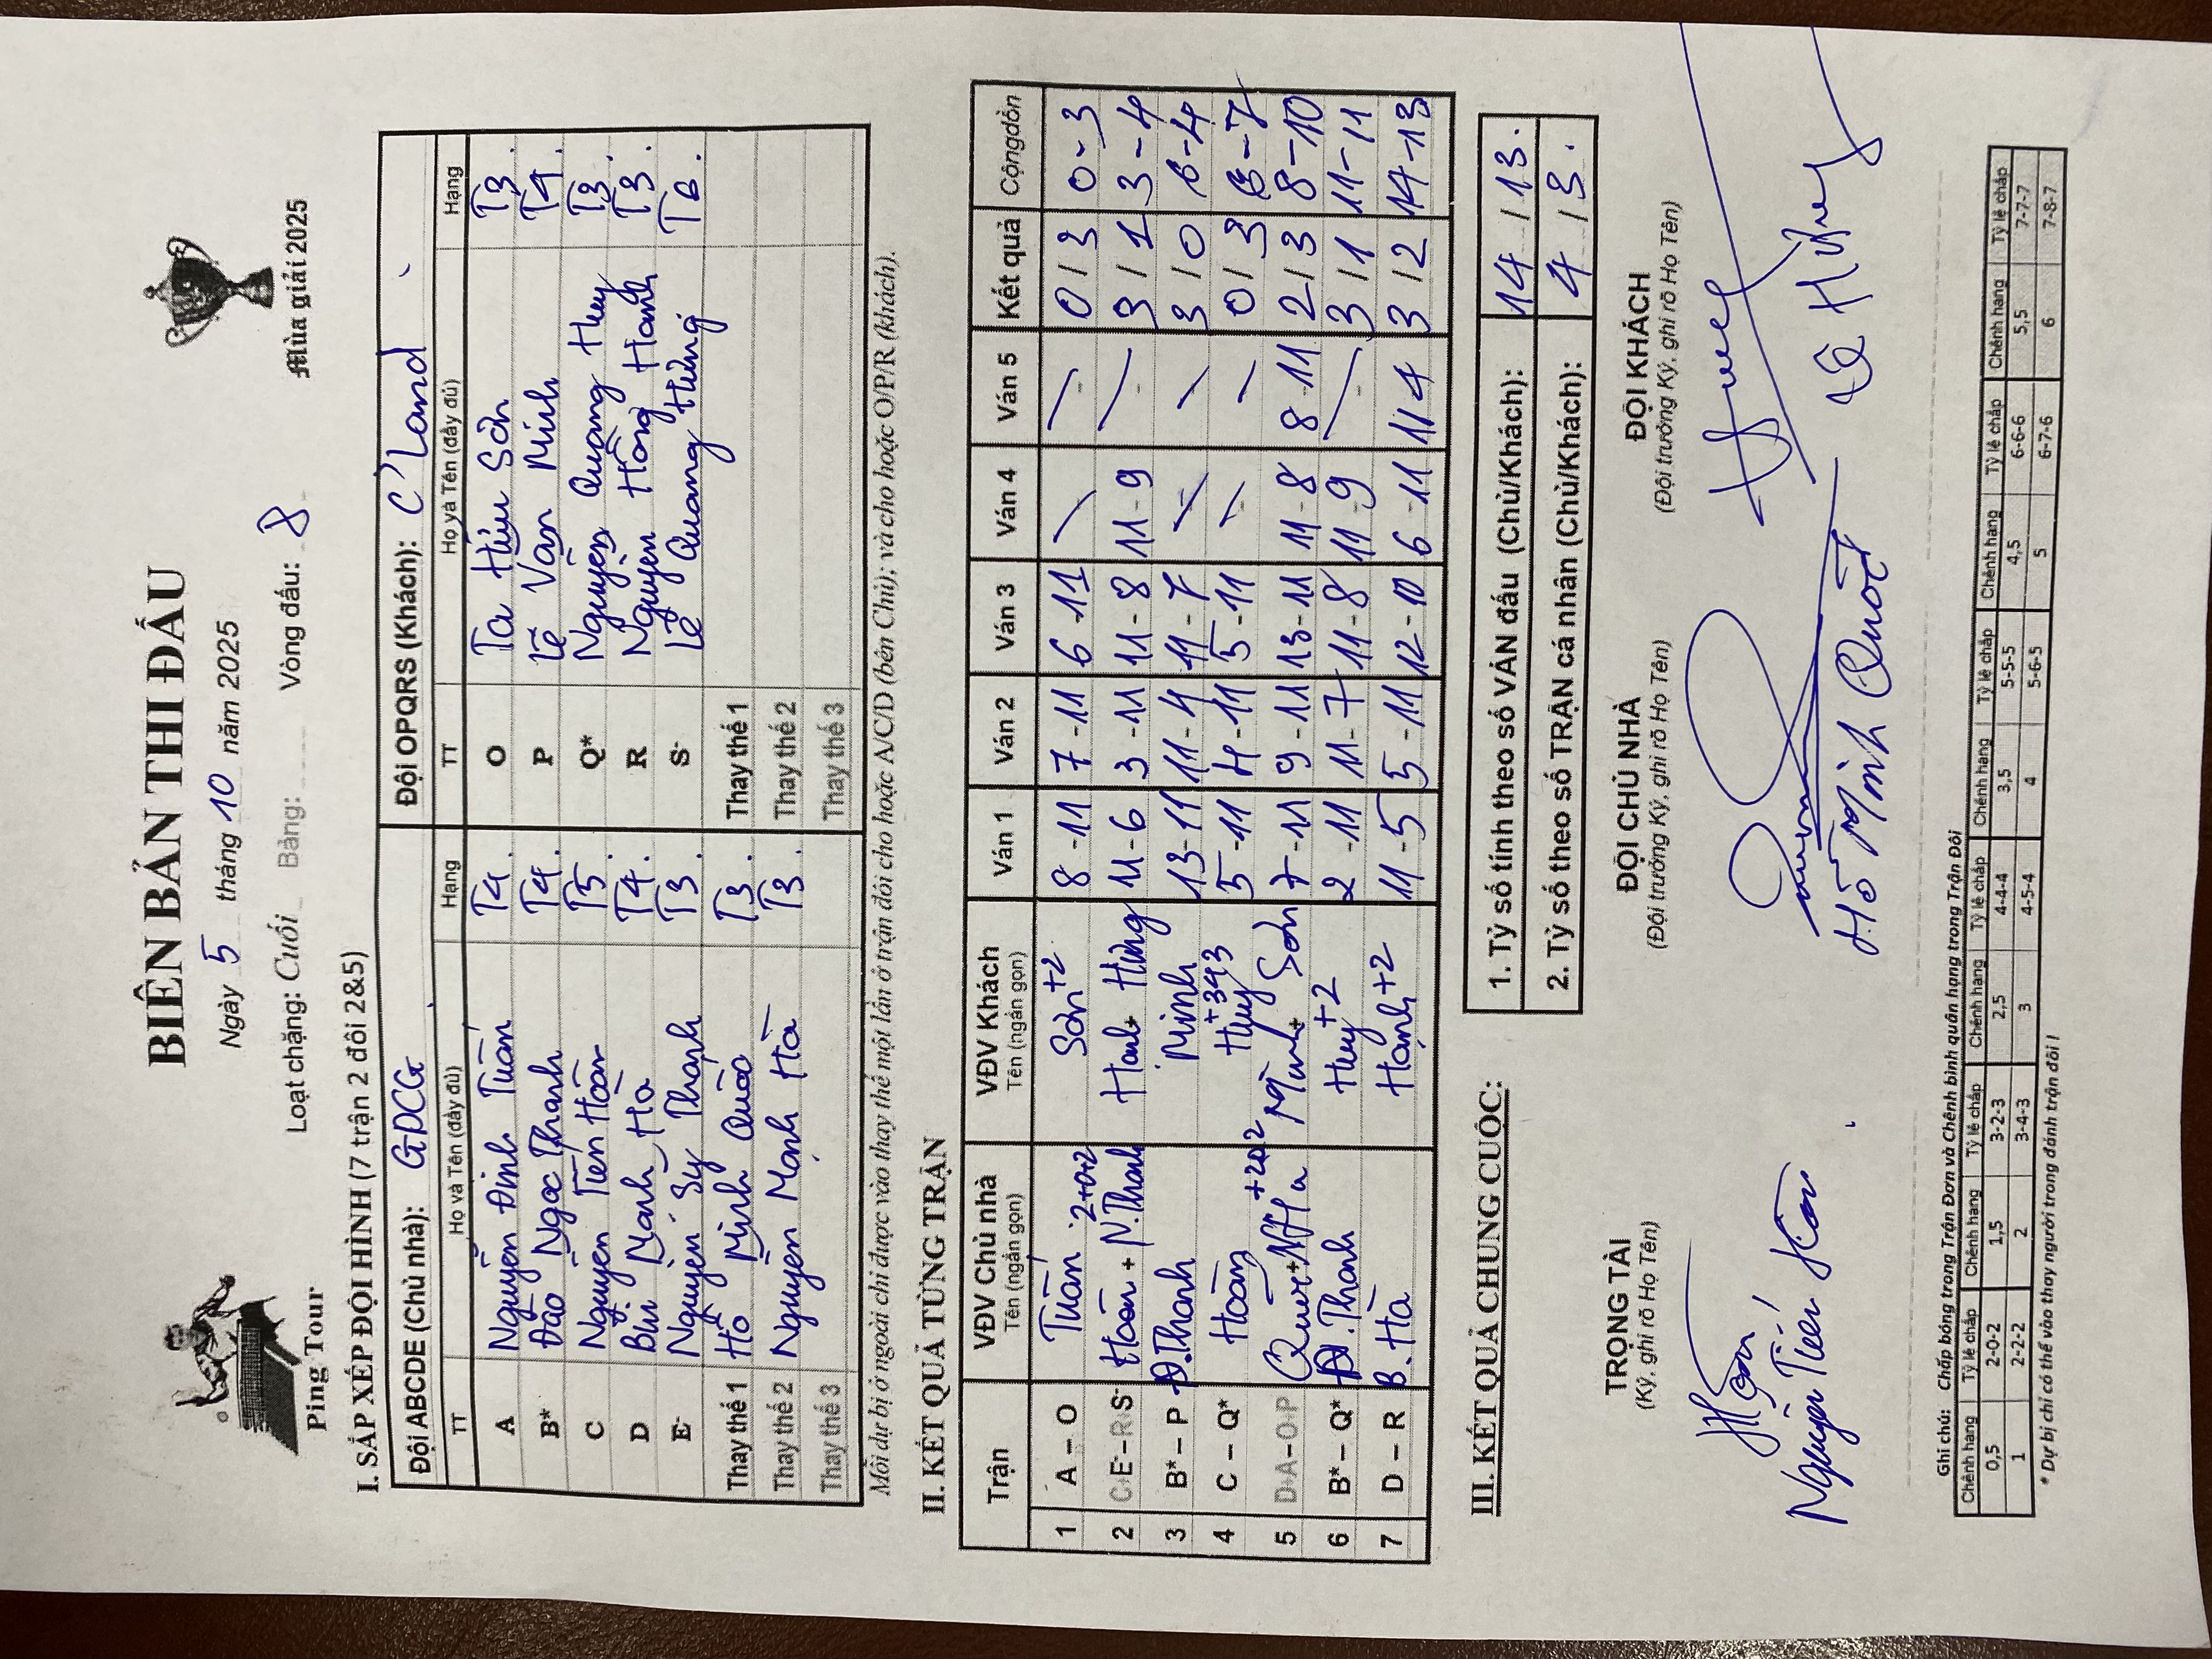 BIÊN BẢN THI ĐẤU
Ngày 5 tháng 10 năm 2025
Ping Tour
Loạt chặng: Cuối Bảng: Vòng đấu: 8
Mùa giải 2025
I. SẮP XẾP ĐỘI HÌNH (7 trận 2 đôi 2&5)
Đội ABCDE (Chủ nhà): GDCG Đội OPQRS (Khách): C'Land
TT Họ và Tên (đầy đủ) Hạng TT Họ và Tên (đầy đủ) Hạng
A Nguyễn Đình Tuấn T4. O Tạ Hữu Sơn T3.
B* Đào Ngọc Thanh T4. P Lê Văn Minh T4.
C Nguyễn Tiến Hoàn T5 Q* Nguyễn Quang Huy T3.
D Bùi Mạnh Hà T4. R Nguyễn Hồng Hạnh T3.
E- Nguyễn Sỹ Thạnh T3. S- Lê Quang Hưng T6.
Thay thế 1 Hồ Minh Quốc T3. Thay thế 1
Thay thế 2 Nguyễn Mạnh Hà T3. Thay thế 2
Thay thế 3 Thay thế 3
Mỗi dự bị ở ngoài chỉ được vào thay thế một lần ở trận đôi cho hoặc A/C/D (bên Chủ); và cho hoặc O/P/R (khách).
II. KẾT QUẢ TỪNG TRẬN
Trận VĐV Chủ nhà Tên (ngắn gọn) VĐV Khách Tên (ngắn gọn) Ván 1 Ván 2 Ván 3 Ván 4 Ván 5 Kết quả Cộngdồn
1 A – O Tuấn 2+0+2 Sơn+2 8 - 11 7 - 11 6 - 11 0 / 3 0 - 3
2 C+E – R+S- Hoàn + N.Thanh Hạnh+ Hưng 11 - 6 3 - 11 11 - 8 11 - 9 3 / 1 3 - 4
3 B* – P Đ.Thanh Minh 13 - 11 11 - 4 11 - 7 3 / 0 6 - 4
4 C – Q* Hoàn Huy +343 5 - 11 4 - 11 5 - 11 0 / 3 6 - 7
5 D+A – O+P +202 Minh+ Sơn 7 - 11 9 - 11 13 - 11 11 - 8 8 - 11 2 / 3 8 - 10
6 B* – Q* Đ.Thanh Huy+2 2 - 11 11 - 7 11 - 8 11 - 9 3 / 1 11 - 11
7 D – R B. Hà Hạnh+2 11 - 5 5 - 11 12 - 10 6 - 11 11 4 3 / 2 14 - 13
III. KẾT QUẢ CHUNG CUỘC:
1. Tỷ số tính theo số VÁN đấu (Chủ/Khách): 14 / 13.
2. Tỷ số theo số TRẬN cá nhân (Chủ/Khách): 4 / 3.
TRỌNG TÀI ĐỘI CHỦ NHÀ ĐỘI KHÁCH
(Ký, ghi rõ Họ Tên) (Đội trưởng Ký, ghi rõ Họ Tên) (Đội trưởng Ký, ghi rõ Họ Tên)
Nguyễn Tiến Hoàn Hồ Minh Quốc
Ghi chú: Chấp bóng trong Trận Đơn và Chênh bình quân hạng trong Trận Đôi
Chênh hạng Tỷ lệ chấp Chênh hạng Tỷ lệ chấp Chênh hạng Tỷ lệ chấp Chênh hạng Tỷ lệ chấp Chênh hạng Tỷ lệ chấp Chênh hạng Tỷ lệ chấp
0,5 2-0-2 1,5 3-2-3 2,5 4-4-4 3,5 5-5-5 4,5 6-6-6 5,5 7-7-7
1 2-2-2 2 3-4-3 3 4-5-4 4 5-6-5 5 6-7-6 6 7-8-7
* Dự bị chỉ có thể vào thay người trong đánh trận đôi !